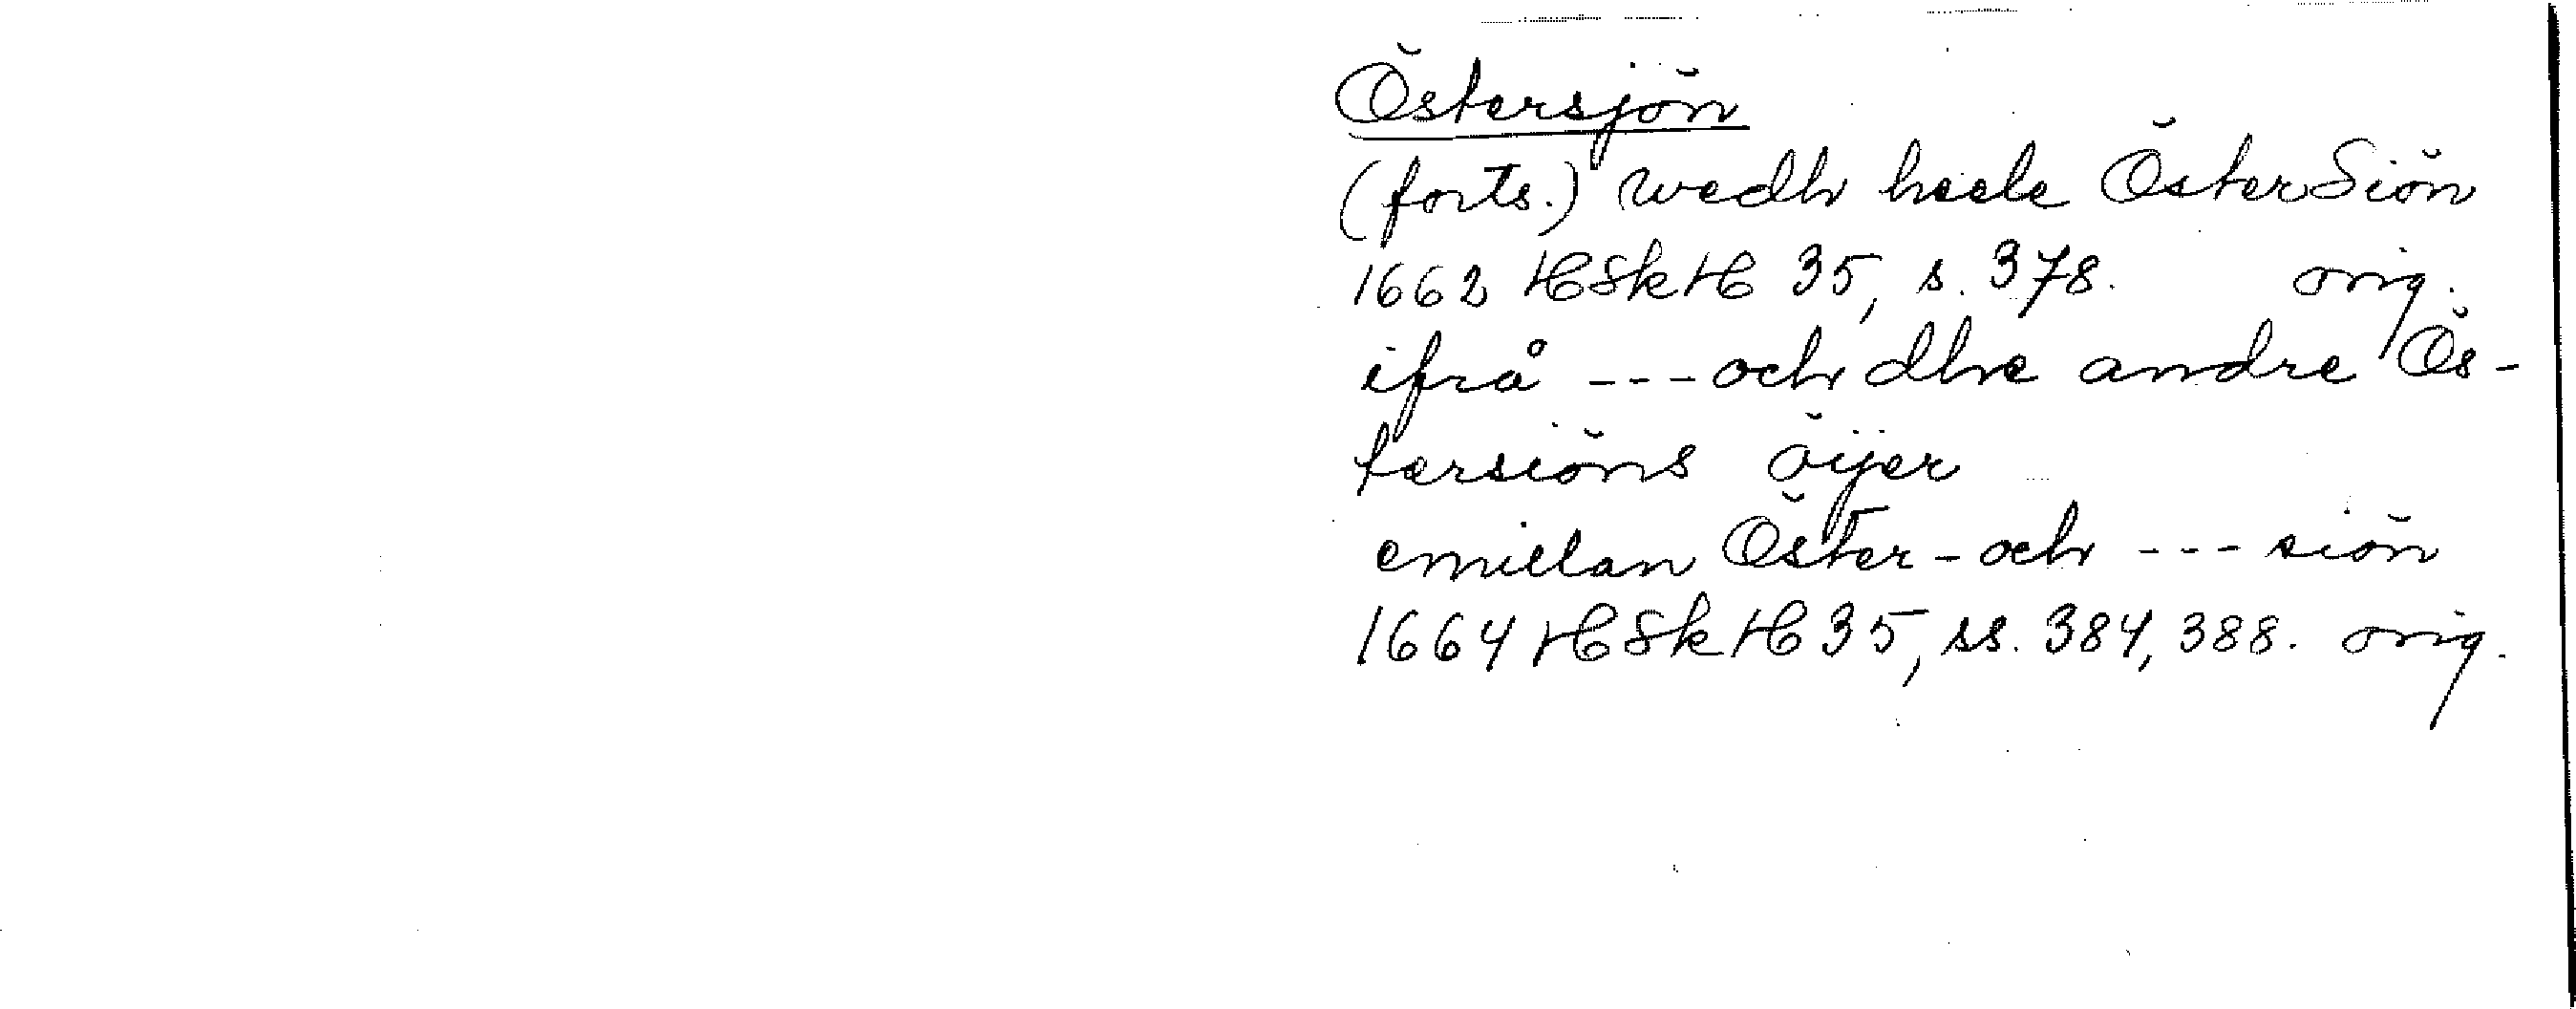 Östersjön
(forts.) wedh heele ÖsterSiön
1662 HSkH 35, s. 378. orig.
ifrå --- och dhe andre Ös-
tersiöns öijer
emillan Öster- och --- siön
1664 HSkH 35, ss. 384, 388. orig.